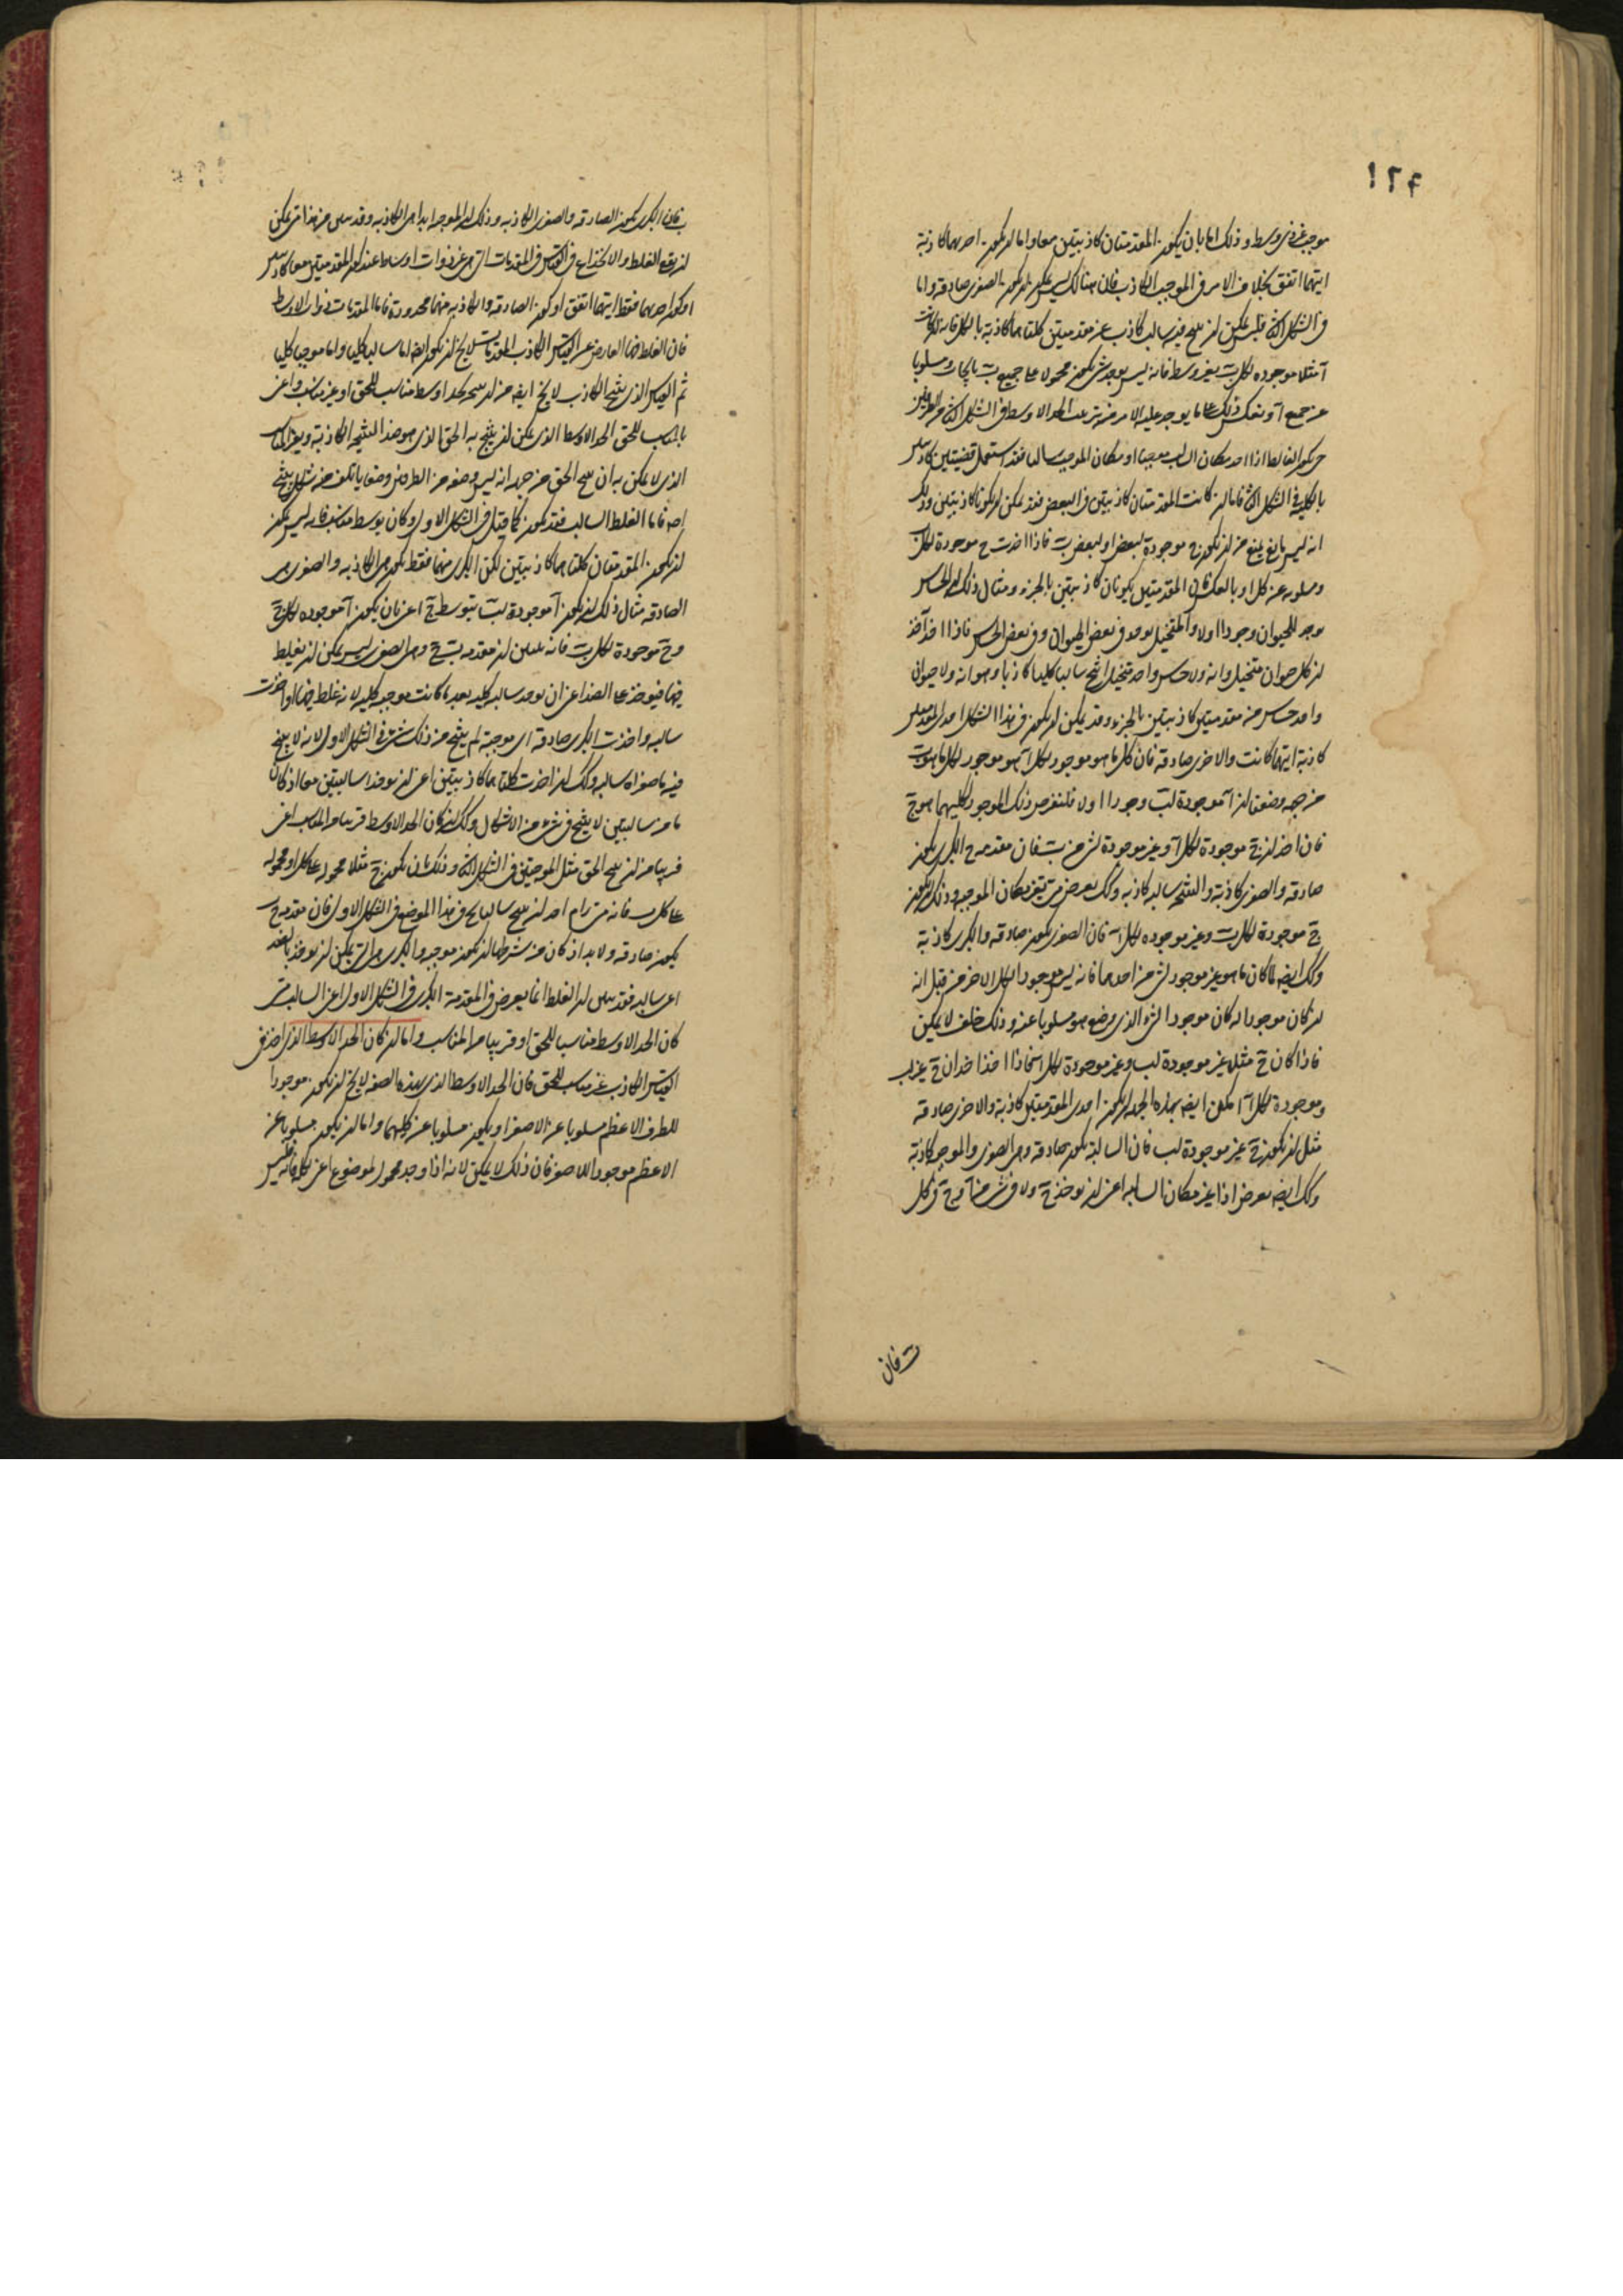 ١٢۴
موجب غير ذي وسط وذلك اما بان يكون المقدمتان كاذبتين معا واما ان يكون احديهما كاذبة
ايتهما اتفق بخلاف الامر في الموجب الكاذب فان هنالك ليس يمكن ان يكون الصغرى صادقه واما
في الشكل الثاني فليس يمكن ان ينتج فيه سالب كاذب عن مقدمتين كلتاهما كاذبة بالكل فانه ان كانت
آ مثلا موجوده لكل ب بغير وسط فانه ليس يوجد شئ يكون محمولا على جميع ب بايجاب ومسلوبا
عن جميع آ وبعكس ذلك على ما يوجد عليه الامر في ترتيب الحد الاوسط في الشكل الثاني من الطرفين
حتى يكون الغالط اذا اخذ مكان السالب موجبا او مكان الموجب سالبا فقد استعمل قضيتين كاذبتين
بالكلية في الشكل الثاني فاما ان كانت المقدمتان كاذبتين في البعض فقد يمكن ان يكونا كاذبتين وذلك
انه ليس مانع يمنع من ان يكون ج موجودة لبعض ا ولبعض ب فاذا اخذت ج موجودة لكل
ومسلوبه عن كل او بالعكس فان المقدمتين يكونان كاذبتين بالجزء ومثال ذلك ان الحساس
يوجد للحيوان وجودا اولا والمتخيل يوجد في بعض الحيوان وفي بعض الحساس فاذا اخذ آخذ
ان كل حيوان متخيل وانه ولا حساس واحد متخيل انتج سالبا كليا كاذبا وهو انه ولا حيوان
واحد حساس من مقدمتين كاذبتين بالجزء وقد يمكن ان يكون في هذا الشكل احدى المقدمتين
كاذبة ايتهما كانت والاخرى صادقه فان كل ما هو موجود لكل آ هو موجود لكل ما هو ب
من جهه وضعنا ان آ موجودة لب وجودا اولا فلنفرض ذلك الموجود لكليهما هو ج
فان اخذ ان ج موجودة لكل آ وغير موجودة لشئ من ب فان مقدمه ج ا الكبرى يكون
صادقه والصغرى كاذبة والنتيجه سالبه كاذبه وكذلك يعرض متى تغير مكان الموجبه وذلك ان يكون
ج موجودة لكل ب وغير موجوده لكل آ فان الصغرى يكون صادقه والكبرى كاذبة
وكذلك ايضه لما كان ما هو غير موجود لشئ من احدهما فانه ليس موجودا لكل الاخر من قبل انه
ان كان موجودا له كان موجودا لشئ الذي وضع هو مسلوبا عنه وذلك خلف لا يمكن
فاذا كان ج مثلا غير موجودة لب وغير موجودة لكل ا فاذا اخذ اخذ ان ج غير ب
وموجودة لكل آ امكن ايضه بهذه الجهه ان يكون احدى المقدمتين كاذبة والاخرى صادقه
مثل ان يكون ج غير موجودة لب فان السالبة يكون صادقه وهى الصغرى والموجبه كاذبة
وكذلك ايضه يعرض اذا غير مكان السالبه اعنى ان يوخذ ج ولا في شئ من آ وج في كل
ب فان
ب فان الكبرى يكون الصادقه والصغرى الكاذبه وذلك ان الموجبه ابدا هى الكاذبه وقد تبين من هذا متى يمكن
ان يقع الغلط والانخداع في القياس في المقدمات التى هى غير ذوات اوساط عند كون المقدمتين معا كاذبتين
او كون احديهما فقط ايتهما اتفق او كون الصادقه والكاذبه منهما محدودة فاما المقدمات ذوات الاوسط
فان الغلط فيها العارض عن القياس الكاذب المقدمات ليس لا يخ ان يكون ايضه اما سالبا كليا واما موجبا كليا
ثم القياس الذي ينتج الكاذب لا يخ ايضه من ان ينتج بحد اوسط مناسب للحق او غير مناسب واعنى
بالمناسب للحق الحد الاوسط الذى يمكن ان ينتج به الحق الذى هو ضد النتيجه الكاذبة وبغير المناسب
الذى لا يمكن به ان ينتج الحق من جهه انه ليس وضعه من الطرفين وضعا يأتلف منه شكل ينتج
اصلا فاما الغلط السالب فقد يكون كما قيل في الشكل الاول وكان بوسط مناسب فانه ليس يمكن
ان يكون المقدمتان كلتاهما كاذبتين لكن الكبرى منهما فقط يكون هى الكاذبه والصغرى هى
الصادقه مثال ذلك ان يكون آ موجودة لب بتوسط ج اعنى بان يكون آ موجوده لكل ج
وج موجودة لكل ب فانه تبين ان مقدمه ب ج وهى الصغرى ليس يمكن ان يغلط
فيها فيوخذ على الضد اعنى ان يوخذ سالبه كليه بعد ما كانت موجبه كليه لانه غلط فيها واخذت
سالبه واخذت الكبرى صادقه اى موجبة لم ينتج من ذلك شئ في الشكل الاول لانه لا ينتج
فيه ما صغراه سالبه وكذلك ان اخذت كلتاهما كاذبتين اعنى ان يوخذا سالبتين معا اذ كان
ما من سالبتين لا ينتج في شئ من الاشكال وكذلك ان كان الحد الاوسط قريبا من المناسب اعنى
قريبا من ان ينتج الحق مثل الموجبتين في الشكل الثاني وذلك بان يكون ج مثلا محموله على كل ا ومحموله
على كل ب فانه متى رام احد ان ينتج سالبا ينتج في هذا الموضع في الشكل الاول فان مقدمه ج ب
يكون صادقه ولا بد اذ كان من شرطها ان يكون موجبه والكبرى هى التى يمكن ان يوخذ بالضد
اعنى سالبه فقد تبين ان الغلط انما يعرض في المقدمة الكبرى في الشكل الاول اعنى السالب متى
كان الحد الاوسط مناسبا للحق او قريبا من المناسب واما ان كان الحد الاوسط الذى اخذ في
القياس الكاذب غير مناسب للحق فان الحد الاوسط الذى بهذه الصفه لا يخ ان يكون موجودا
للطرف الاعظم مسلوبا عن الاصغر او يكون مسلوبا عن كليهما واما ان يكون مسلوبا عن
الاعظم موجودا للاصغر فان ذلك لا يمكن لانه اذا وجد محمول لموضوع اعنى لكله فانه ليس